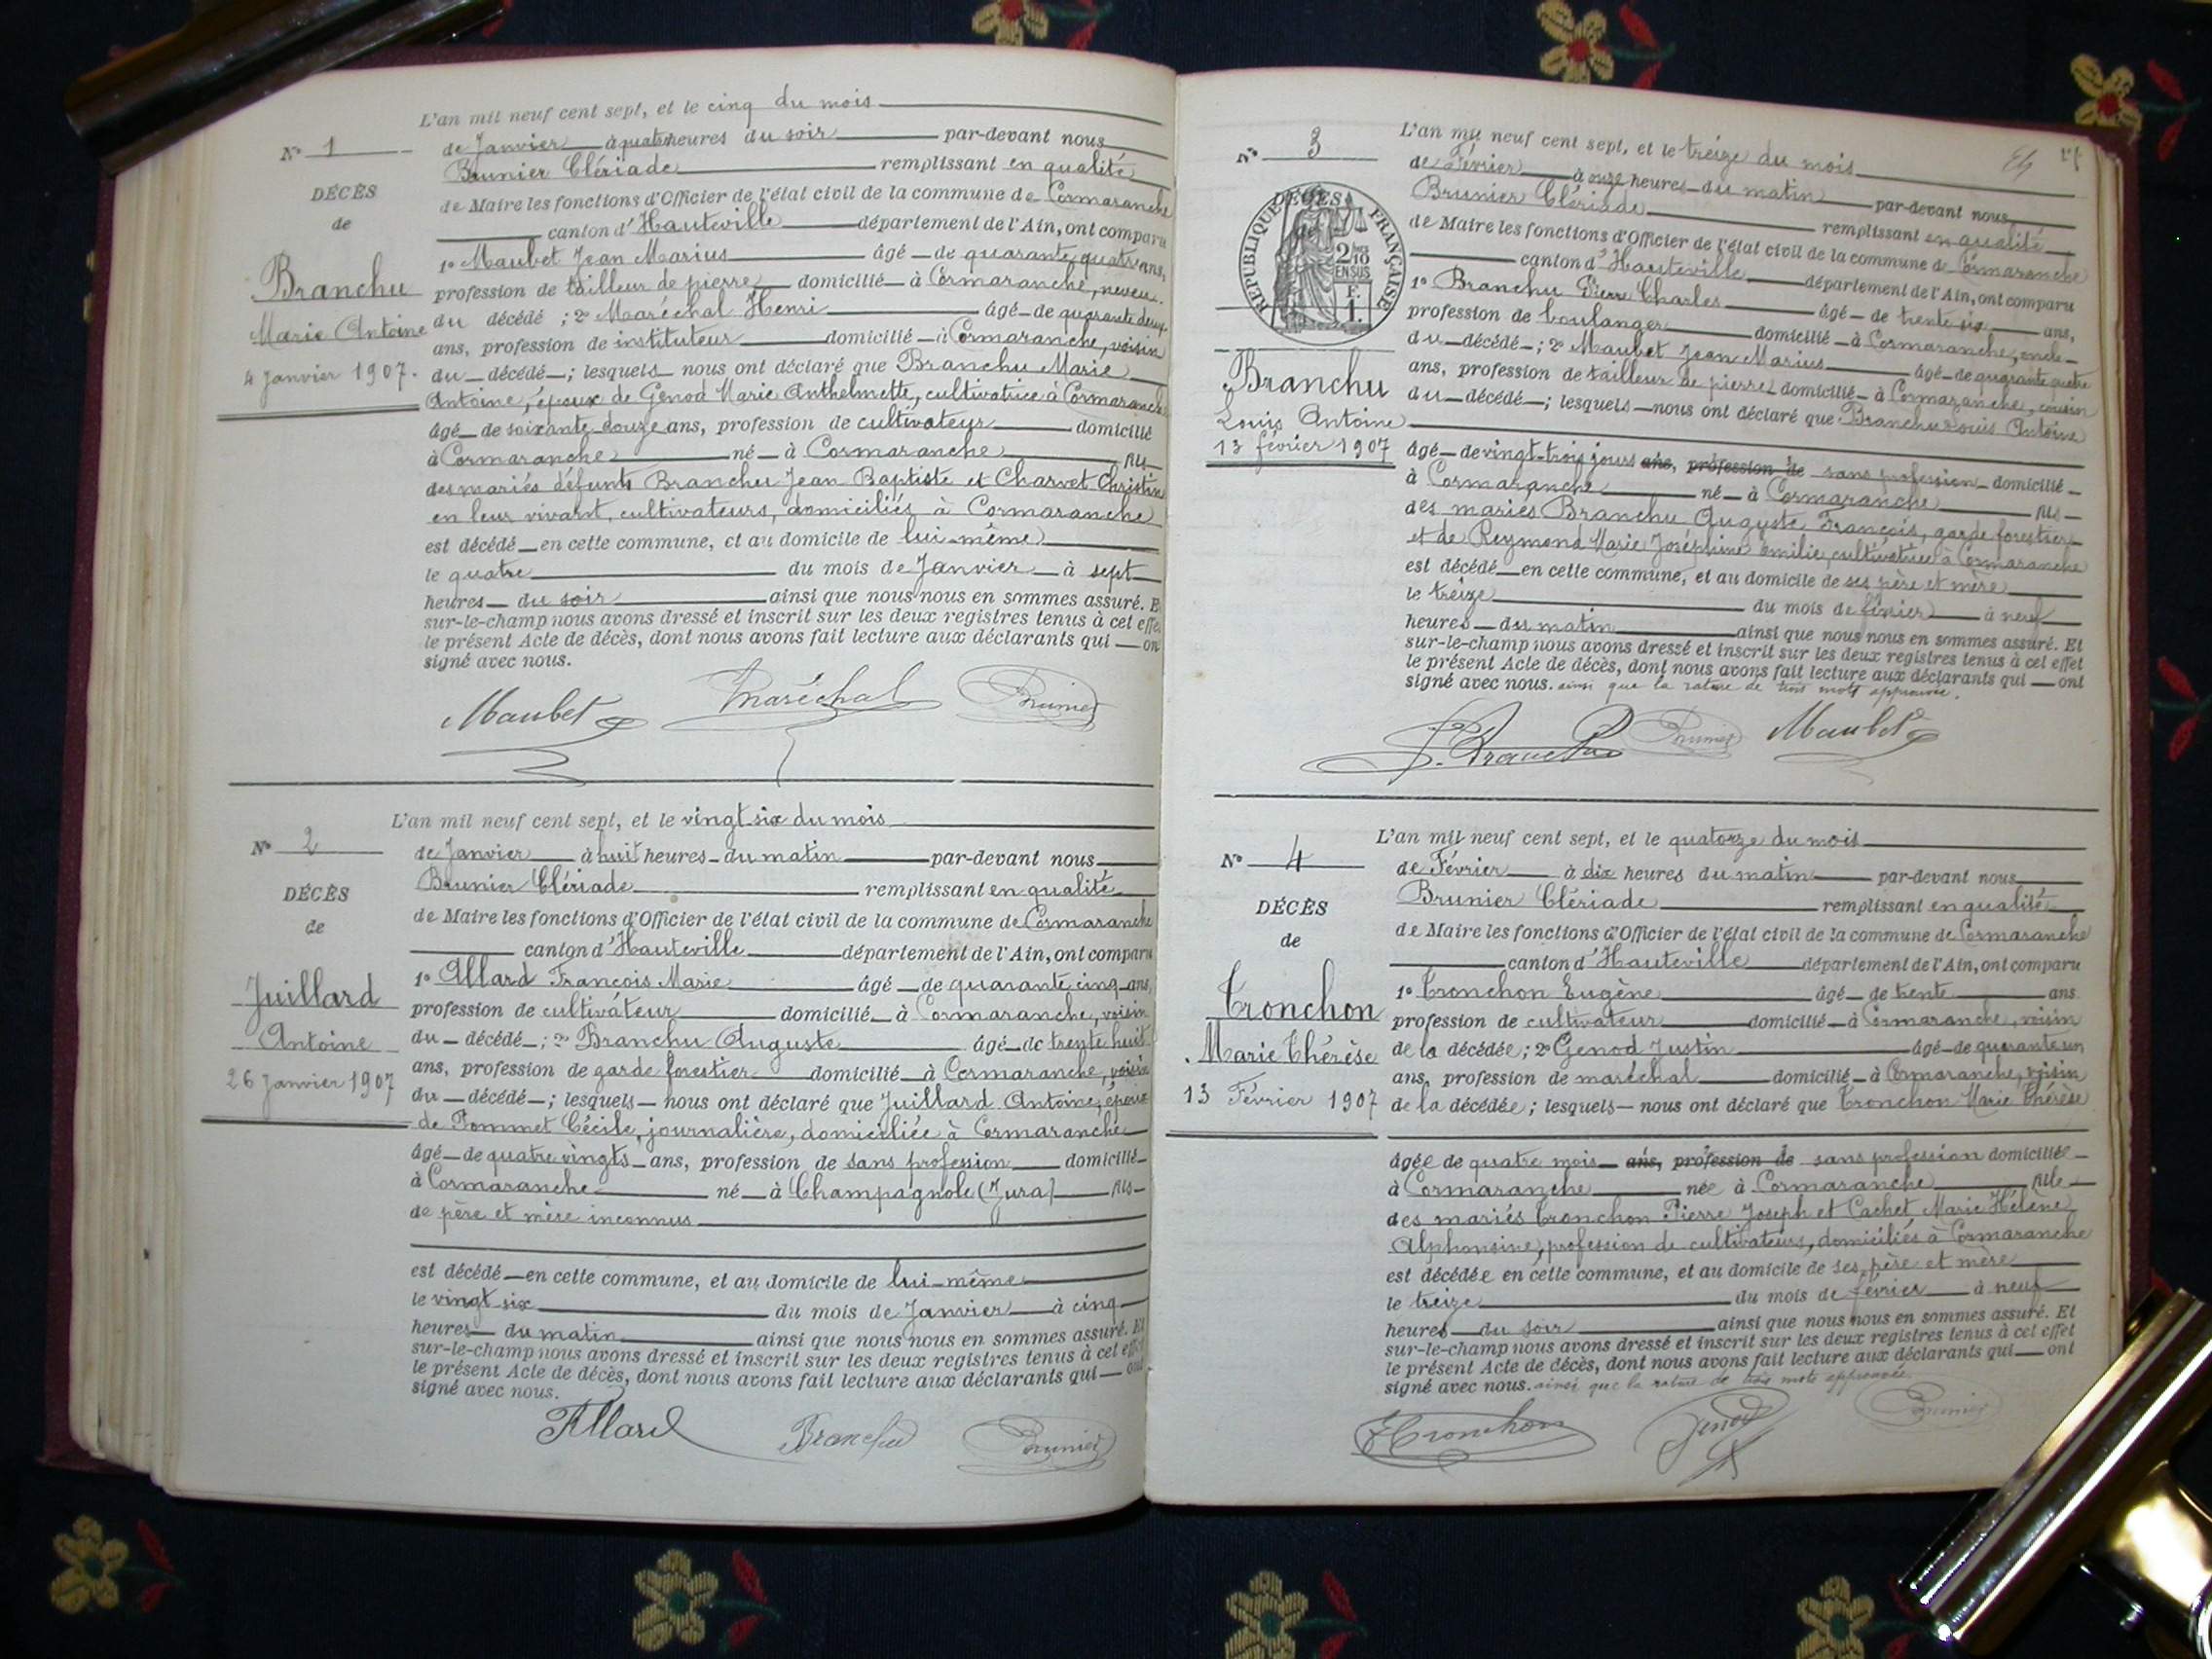 L'an mil neuf cent sept, et le cinq du mois
N° 1
de Janvier à quatre heures du soir par-devant nous
Brunier Clériade remplissant en qualité
DÉCÈS
de Maire les fonctions d'Officier de l'état civil de la commune de Cormaranche
de
canton d'Hauteville département de l'Ain, ont comparu
1° Maubet Jean Marius âgé de quarante quatre ans,
Branchu
profession de tailleur de pierre domicilié à Cormaranche, neveu
Marie Antoine
du décédé ; 2° Maréchal Henri âgé de quarante deux
ans, profession de instituteur domicilié à Cormaranche, voisin
4 Janvier 1907.
du décédé ; lesquels nous ont déclaré que Branchu Marie
Antoine, époux de Genod Marie Anthelmette, cultivatrice à Cormaranche
âgé de soixante douze ans, profession de cultivateur domicilié
à Cormaranche né à Cormaranche fils
des mariés défunts Branchu Jean Baptiste et Charvet Christine
en leur vivant, cultivateurs, domiciliés à Cormaranche
est décédé en cette commune, et au domicile de lui-même
le quatre du mois de Janvier à sept
heures du soir ainsi que nous nous en sommes assuré. Et
sur-le-champ nous avons dressé et inscrit sur les deux registres tenus à cet effet
le présent Acte de décès, dont nous avons fait lecture aux déclarants qui ont
signé avec nous.
Maubet Maréchal Brunier
L'an mil neuf cent sept, et le vingt-six du mois
N° 2
de Janvier à huit heures du matin par-devant nous
Brunier Clériade remplissant en qualité
DÉCÈS
de Maire les fonctions d'Officier de l'état civil de la commune de Cormaranche
de
canton d'Hauteville département de l'Ain, ont comparu
1° Allard François Marie âgé de quarante cinq ans,
Juillard
profession de cultivateur domicilié à Cormaranche, voisin
Antoine
du décédé ; 2° Branchu Auguste âgé de trente huit
ans, profession de garde forestier domicilié à Cormaranche, voisin
26 Janvier 1907
du décédé ; lesquels nous ont déclaré que Juillard Antoine, époux
de Pommet Cécile, journalière, domiciliée à Cormaranche
âgé de quatre vingts ans, profession de sans profession domicilié
à Cormaranche né à Champagnole (Jura) fils
de père et mère inconnus
est décédé en cette commune, et au domicile de lui-même
le vingt six du mois de Janvier à cinq
heures du matin ainsi que nous nous en sommes assuré. Et
sur-le-champ nous avons dressé et inscrit sur les deux registres tenus à cet effet
le présent Acte de décès, dont nous avons fait lecture aux déclarants qui ont
signé avec nous.
Allard Branchu Brunier
L'an mil neuf cent sept, et le treize du mois
N° 3
de Février à onze heures du matin par-devant nous
Brunier Clériade remplissant en qualité
DÉCÈS
RÉPUBLIQUE FRANÇAISE
2/10 EN SUS
F. 1.
de Maire les fonctions d'Officier de l'état civil de la commune de Cormaranche
canton d'Hauteville département de l'Ain, ont comparu
1° Branchu Pierre Charles âgé de trente six ans,
profession de boulanger domicilié à Cormaranche, oncle
du décédé ; 2° Maubet Jean Marius âgé de quarante quatre
ans, profession de tailleur de pierre domicilié à Cormaranche, cousin
Branchu
du décédé ; lesquels nous ont déclaré que Branchu Louis Antoine
Louis Antoine
13 février 1907
âgé de vingt-trois jours ans, profession de sans profession domicilié
à Cormaranche né à Cormaranche fils
des mariés Branchu Auguste François, garde forestier
et de Reymond Marie Joséphine Emilie, cultivatrice à Cormaranche
est décédé en cette commune, et au domicile de ses père et mère
le treize du mois de février à neuf
heures du matin ainsi que nous nous en sommes assuré. Et
sur-le-champ nous avons dressé et inscrit sur les deux registres tenus à cet effet
le présent Acte de décès, dont nous avons fait lecture aux déclarants qui ont
signé avec nous. ainsi que la rature de trois mots approuvée.
P. Branchu Brunier Maubet
L'an mil neuf cent sept, et le quatorze du mois
N° 4
de Février à dix heures du matin par-devant nous
Brunier Clériade remplissant en qualité
DÉCÈS
de Maire les fonctions d'Officier de l'état civil de la commune de Cormaranche
de
canton d'Hauteville département de l'Ain, ont comparu
1° Tronchon Eugène âgé de trente ans
Tronchon
profession de cultivateur domicilié à Cormaranche, voisin
Marie Thérèse
de la décédée ; 2° Genod Justin âgé de quarante un
ans, profession de maréchal domicilié à Cormaranche, voisin
13 Février 1907
de la décédée ; lesquels nous ont déclaré que Tronchon Marie Thérèse
âgée de quatre mois ans, profession de sans profession domiciliée
à Cormaranche née à Cormaranche fille
des mariés Tronchon Pierre Joseph et Cachet Marie Hélène
Alphonsine, profession de cultivateurs, domiciliés à Cormaranche
est décédée en cette commune, et au domicile de ses père et mère
le treize du mois de février à neuf
heures du soir ainsi que nous nous en sommes assuré. Et
sur-le-champ nous avons dressé et inscrit sur les deux registres tenus à cet effet
le présent Acte de décès, dont nous avons fait lecture aux déclarants qui ont
signé avec nous. ainsi que la rature de trois mots approuvée
E Tronchon Genod Brunier